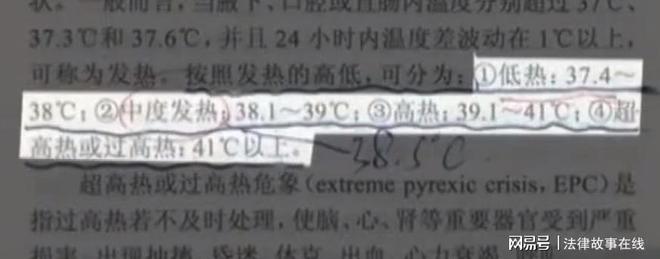 状。一般而言，当腋下、口腔或直肠内温度分别超过37℃、
37.3℃和37.6℃，并且24小时内温度差波动在1℃以上，
可称为发热。按照发热的高低，可分为：①低热：37.4～
38℃；②中度发热：38.1～39℃；③高热：39.1～41℃；④超
高热或过高热：41℃以上。
38.5℃
超高热或过高热危象（extreme pyrexic crisis，EPC）是
指过高热若不及时处理，使脑、心、肾等重要器官受到严重
损害，出现抽搐、昏迷、休克、出血、心力衰竭
网易号 | 法律故事在线